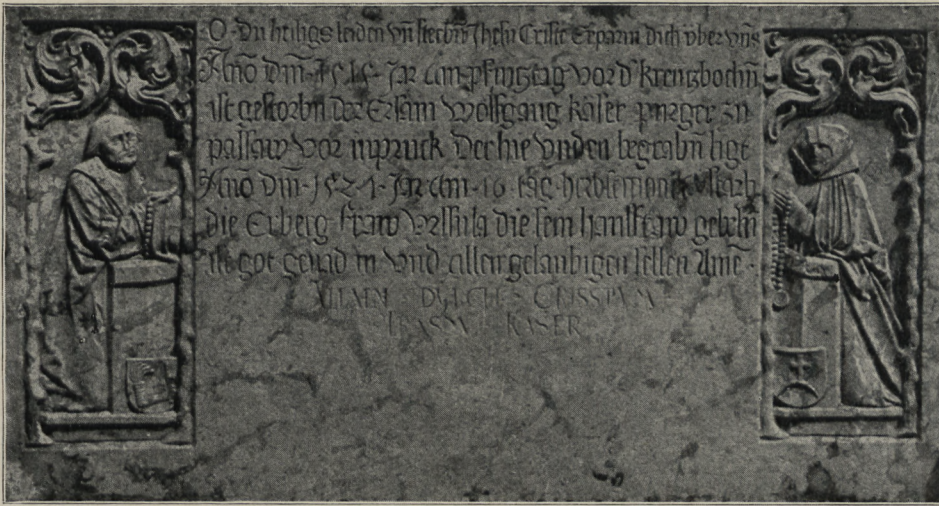 O Du heiligs leiden vn̄ sterbn̄ Jhesu Criste Erparm dich vber vns
Año dm̄ 1515 Jar am pfingtag vor d' kreutzbochn̄
ist gestorbn̄ der Ersam Wolfgang kåser purger zu
passaw vor inpruck Der hie vnden begrabn̄ ligt
Año dm̄ 1521 Jar am 16 tag herbstmonet starb
die Erberg fraw vrsula die sein hausfraw gebesn̄
ist got genad in vnd allen gelaubigen sellen Ame̅
ALLAIN DVRCH CRISSTVM
KASER